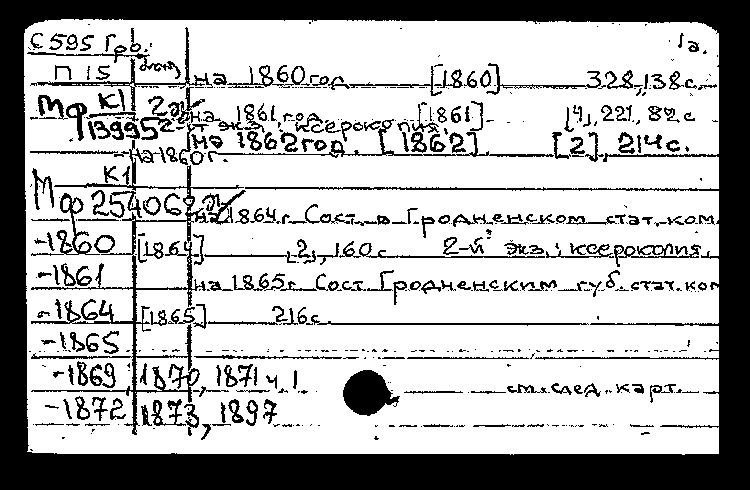 С 595 Гро. 1а.
П 15 на 1860 год [1860] 328, 138 с.
Мф К1 2 на 1861 год [1861] [4], 221, 82 с
139952 экз.: ксерокопия.
на 1862 год. [1862] [2], 214 с.
на 1860 г.
К1
Мф 254062 на 1864 г. Сост. в Гродненском стат. ком.
-1860 [1864] [2], 160 с 2-й экз.: ксерокопия.
-1861 на 1865 г. Сост Гродненским губ. стат. ком
-1864 [1865] 216 с.
-1865
-1869, 1870, 1871 ч. 1 см. след. карт.
-1872 1873, 1897